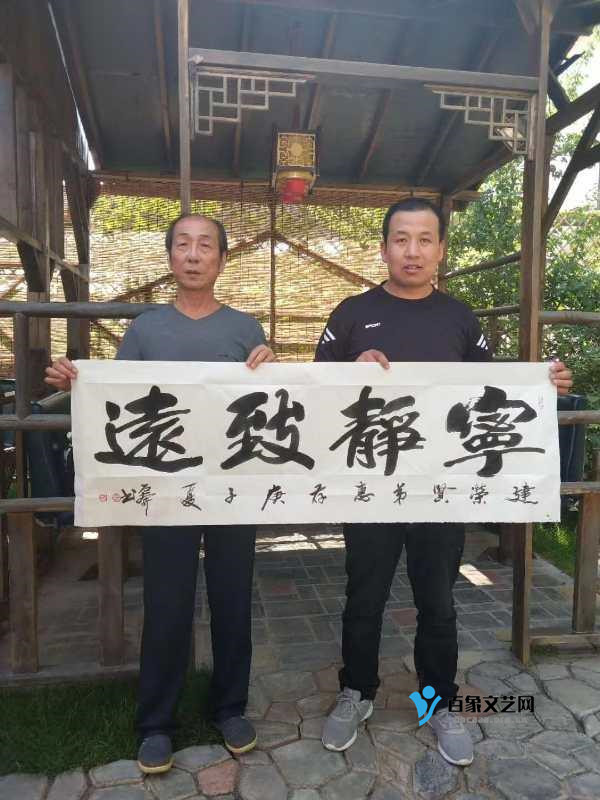 寧靜致遠
建榮賢弟惠存庚子夏
SPORT
百象文艺网